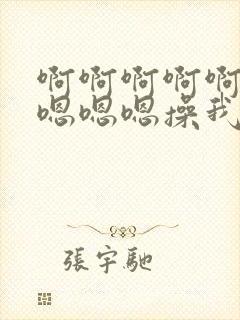 啊啊啊啊啊
嗯嗯嗯操我
張宇馳